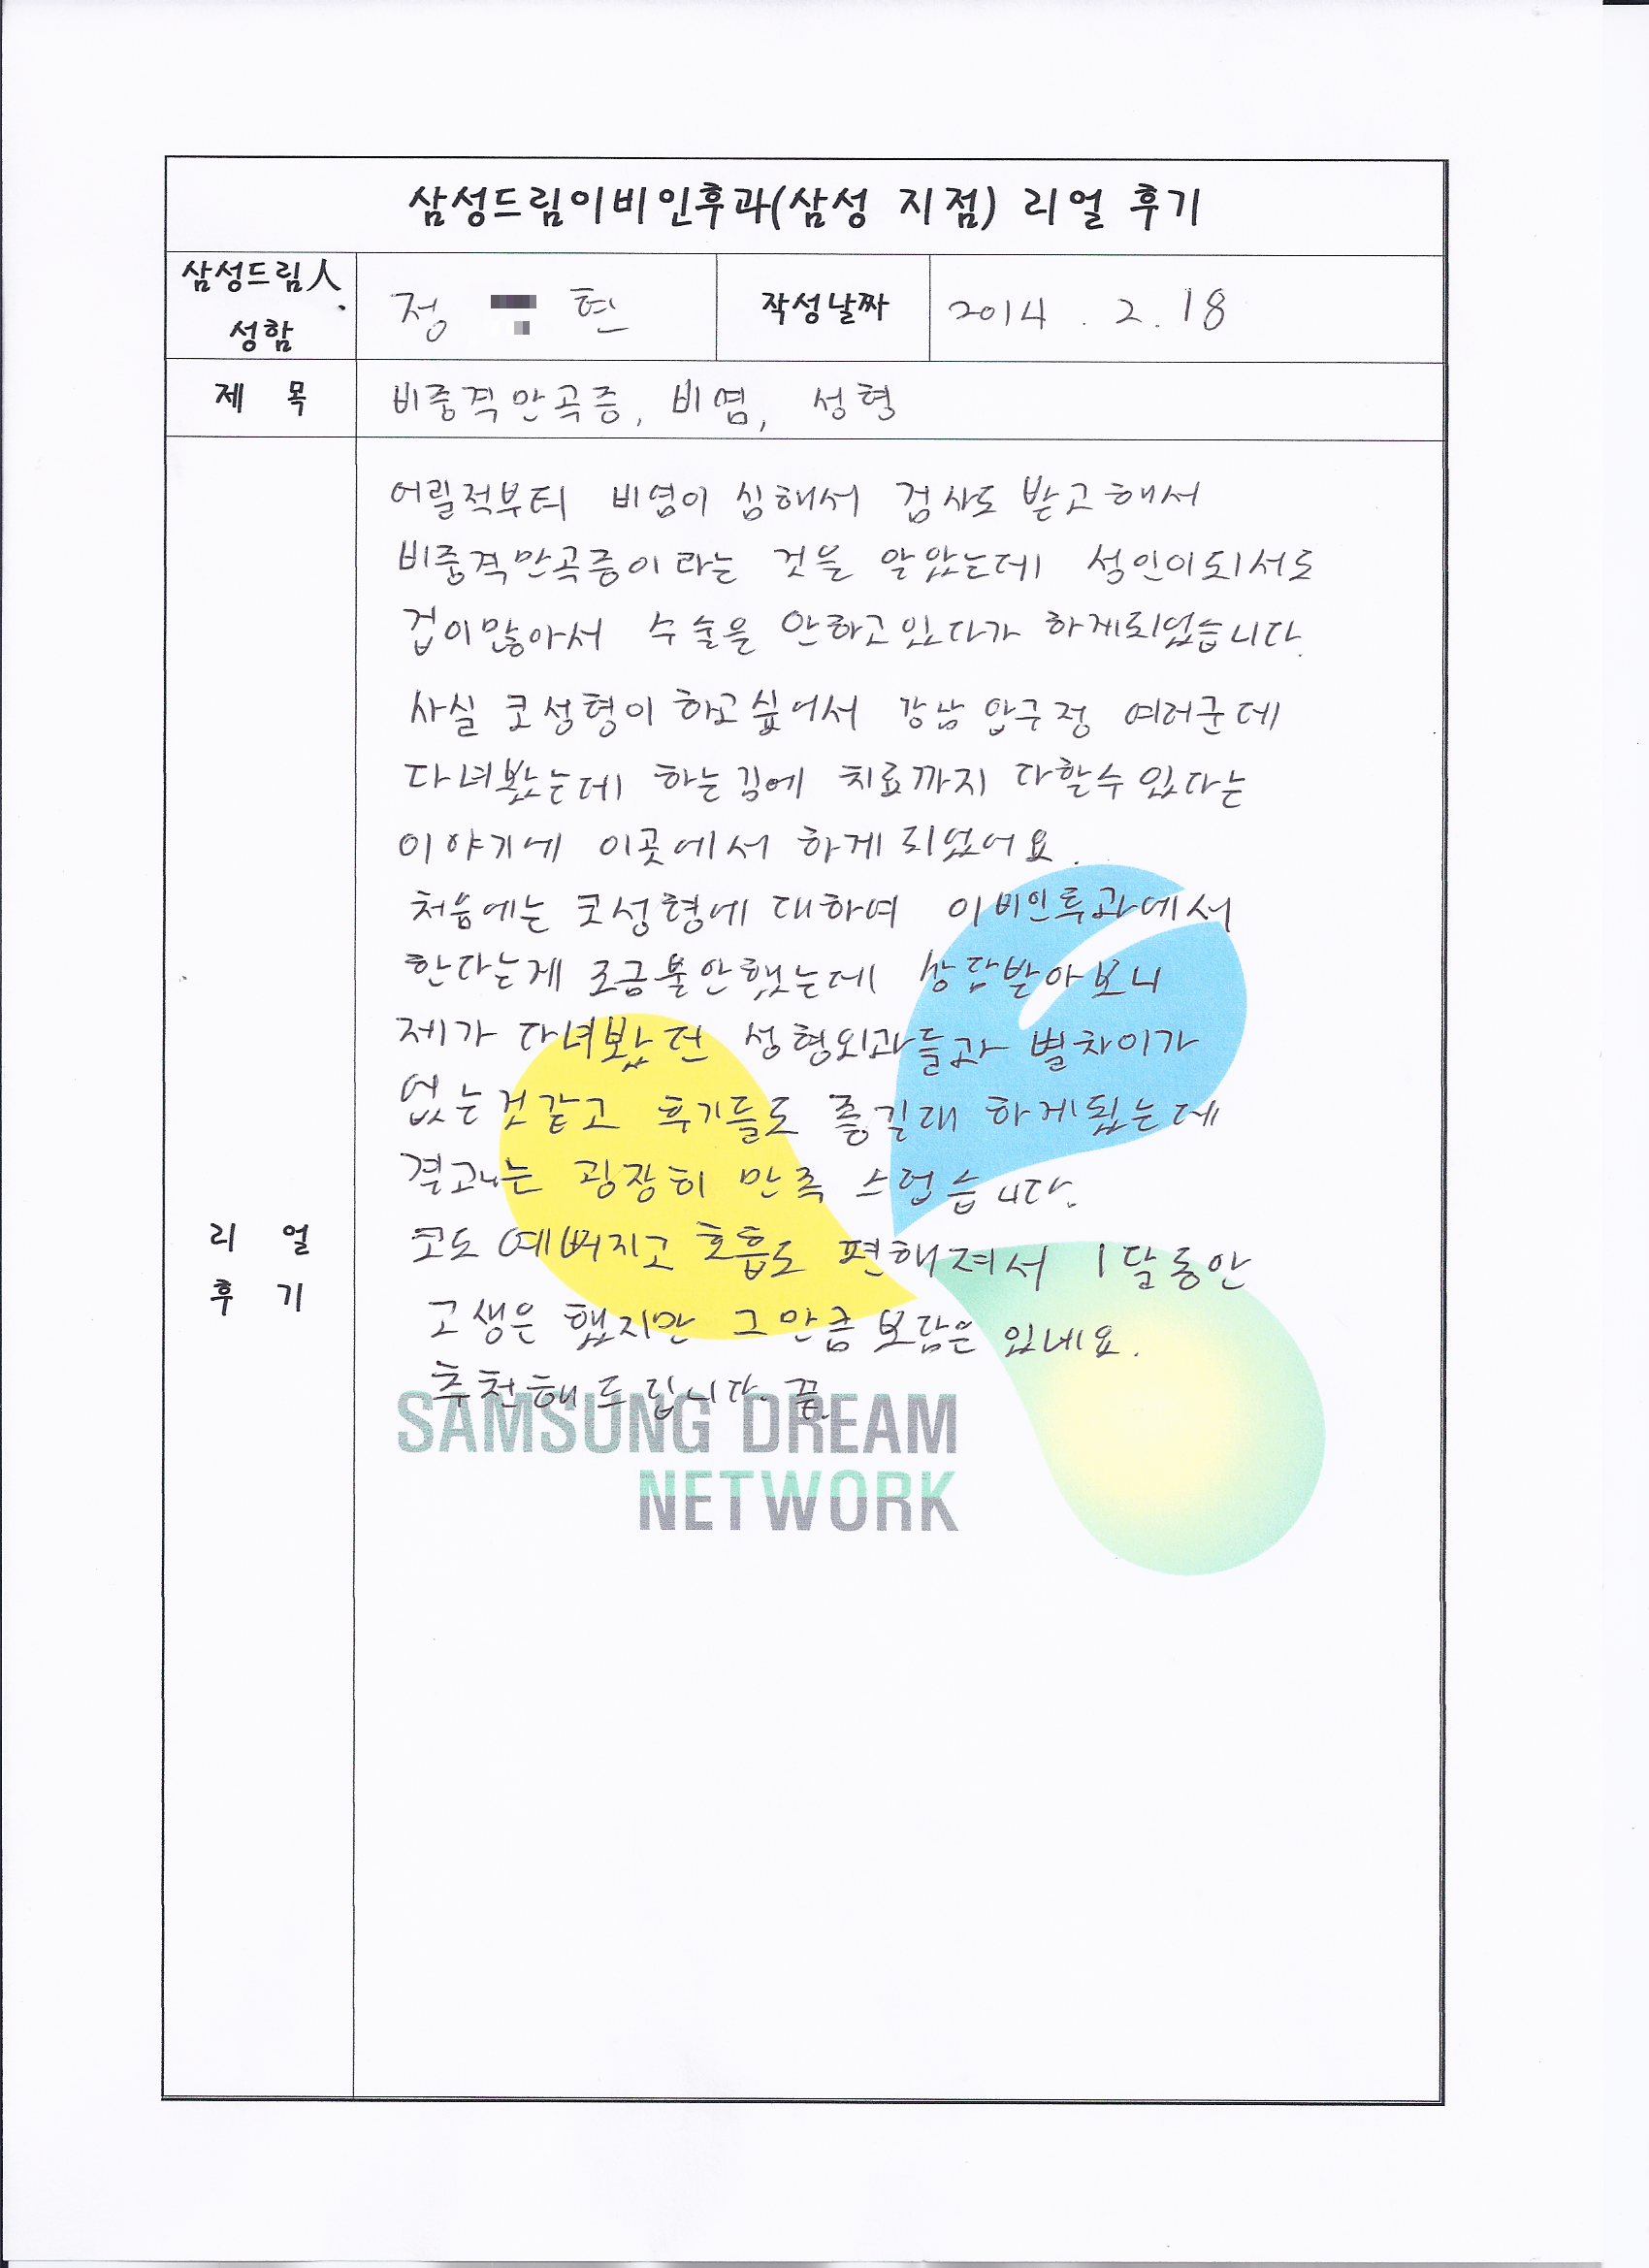 삼성드림이비인후과(삼성 지점) 리얼 후기
삼성드림人
성함
정 현
작성날짜
2014 . 2. 18
제 목
비중격만곡증, 비염, 성형
어릴적부터 비염이 심해서 검사도 받고해서
비중격만곡증이라는 것을 알았는데 성인이되서도
겁이많아서 수술을 안하고있다가 하게되었습니다.
사실 코성형이 하고싶어서 강남 압구정 여러군데
다녀봤는데 하는김에 치료까지 다할수있다는
이야기에 이곳에서 하게 되었어요.
처음에는 코성형에 대하여 이비인후과에서
한다는게 조금불안했는데 상담받아보니
제가 다녀봤던 성형외과들과 별차이가
없는것같고 후기들도 좋길래 하게됐는데
결과는 굉장히 만족 스럽습니다.
코도 예뻐지고 호흡도 편해져서 1달동안
고생은 했지만 그만큼 보람은 있네요.
추천해 드립니다. 끝.
리 얼
후 기
SAMSUNG DREAM
NETWORK